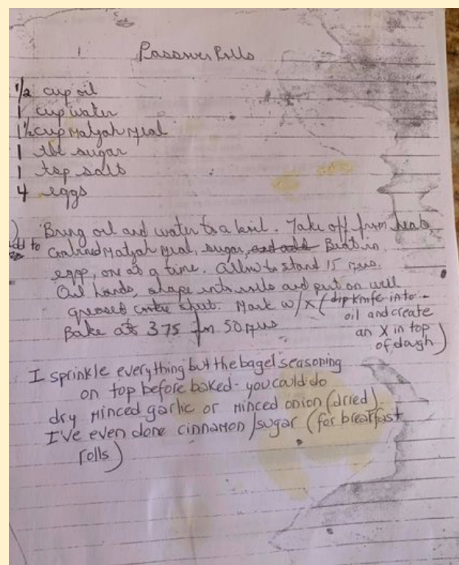 Passover Rolls
1/2 cup oil
1 cup water
1 1/2 cup Matzah Meal
1 tbl sugar
1 tsp salt
4 eggs
Bring oil and water to a boil. Take off from heat
add to combined Matzah Meal, sugar, Beat in
eggs, one at a time. Allow to stand 15 mins.
Oil hands, shape into rolls and put on well
greased cookie sheet. Mark w/ X (dip knife into
oil and create
an X in top
of dough)
Bake at 375 for 50 mins
I sprinkle everything but the bagel seasoning
on top before baked - you could do
dry minced garlic or minced onion (dried)
I've even done cinnamon/sugar (for breakfast
rolls)